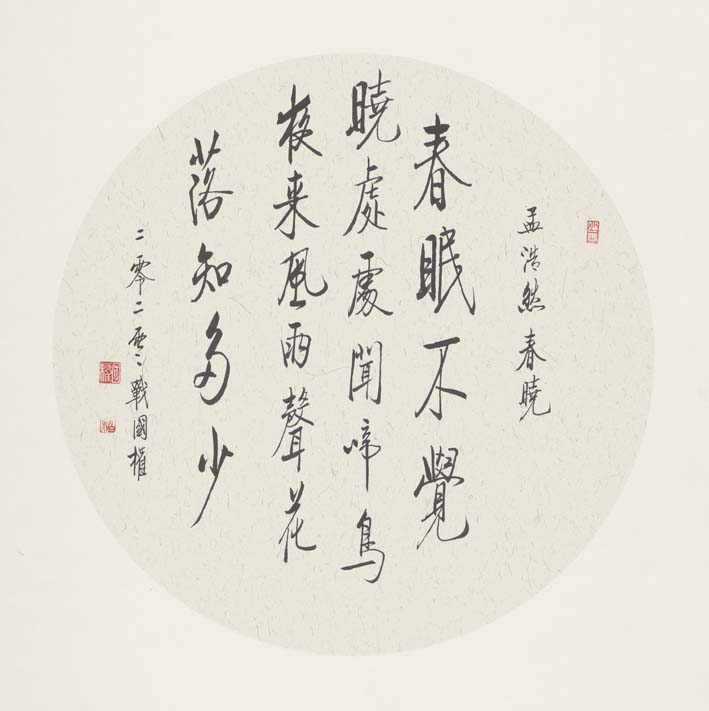 孟浩然春曉
春眠不覺
曉處處聞啼鳥
夜来風雨聲花
落知多少
二零二零戰國權